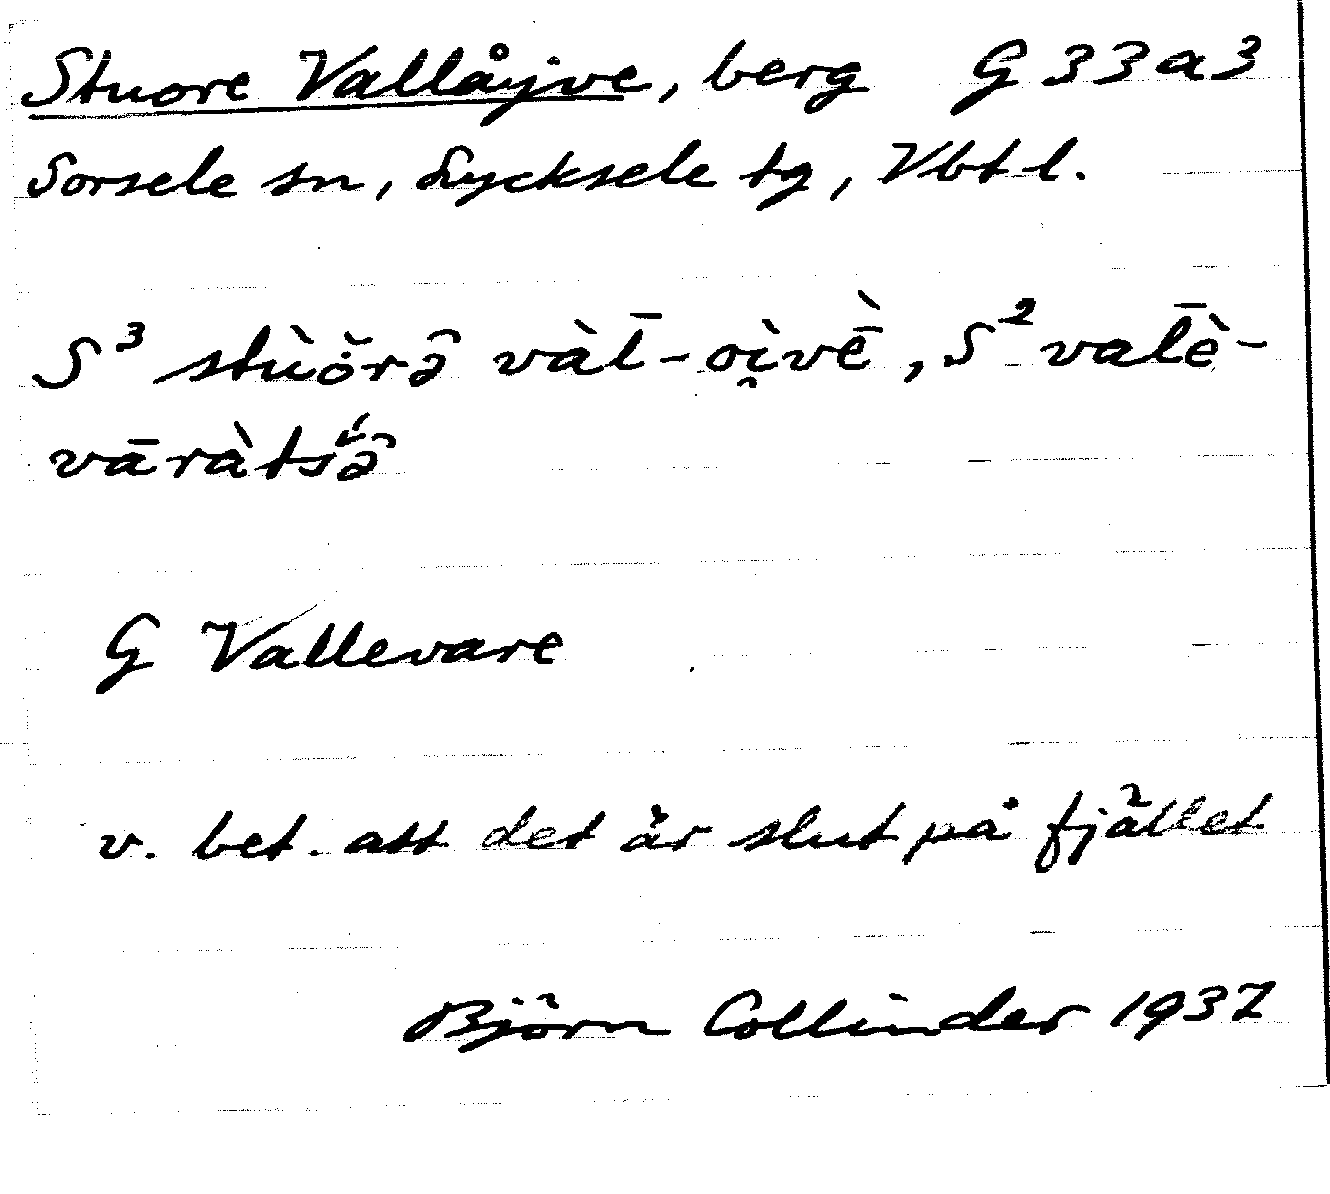 Stuore Vallåjve, berg G 33 a 3
Sorsele sn, Lycksele tg, Vbtl.
S³ stùȯ̀rə̑ vàl̄-oì̯vḕ, S² val̄è-
vāràtsə̑́
G Vallevare
v. bet. att det är slut på fjället
Björn Collinder 1937